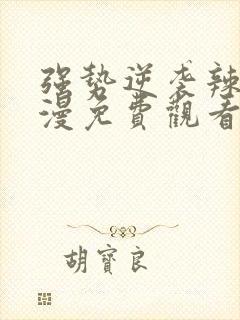 强势逆袭辣
漫免費觀看
胡寶良